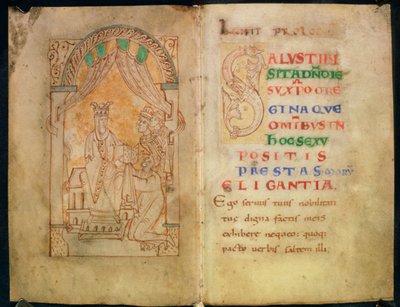 INCIPIT PROLOG
SALUS TIBI
SIT A DÑO IE
SU XPO O RE
GINA QUE
OMIBUS IN
HOC SEXU
POSITIS
PRESTAS MORU
ELIGANTIA.
Ego seruus tuus nobilitati
tuę digna factis meis
exhibere nequeo: quoq;
pacto uerbis saltem illi